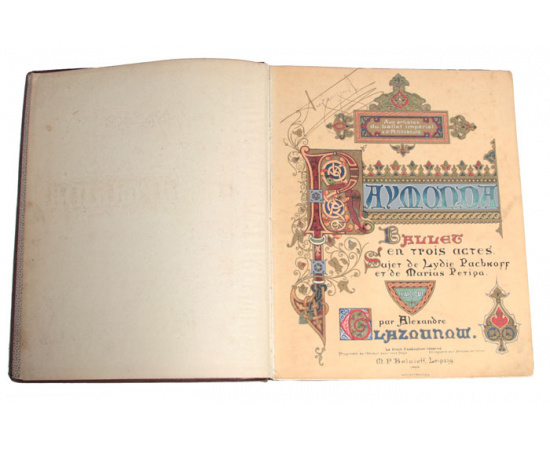 Aux artistes
du ballet impérial
RAYMONDA
BALLET
EN TROIS ACTES.
Sujet de Lydie Pachkoff
et de Marius Petipa.
par Alexandre
GLAZOUNOW.
M. P. Belaieff, Leipzig